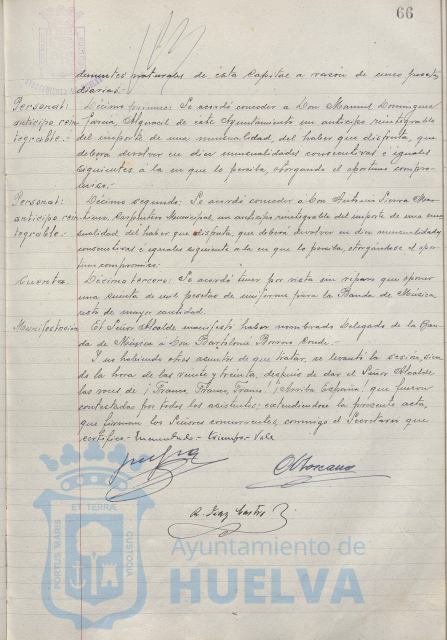 66
dementes naturales de esta Capital a razón de cinco pesetas
diarias.-
Personal: Décimo primero: Se acordó conceder a Don Manuel Domínguez
anticipo rein García, Alguacil de este Ayuntamiento un anticipo reintegrable
tegrable.- del importe de una mensualidad, del haber que disfruta, que
deberá devolver en diez mensualidades consecutivas e iguales
siguientes a la en que lo perciba, otorgando el oportuno compro-
miso.-
Personal: Décimo segundo: Se acordó conceder a Don Antonio
anticipo rein Carpintero Municipal, un anticipo reintegrable del importe de una men-
tegrable.- sualidad del haber que disfruta, que deberá devolver en diez mensualidades
consecutivas e iguales siguiente a la en que lo perciba, otorgándose el opor-
tuno compromiso.-
Cuenta Décimo tercero: Se acordó tener por vista sin reparo que oponer
una cuenta de mil pesetas de uniforme para la Banda de Música
resto de mayor cantidad.
Manifestación El Señor Alcalde manifestó haber nombrado Delegado de la Ban-
da de Música a Don Bartolomé Conde.-
Y no habiendo otros asuntos de que tratar, se levantó la sesión, sien-
do la hora de las veinte y treinta, después de dar el Señor Alcalde
las voces de ¡Franco, Franco, Franco! ¡Arriba España! que fueron
contestadas por todos los asistentes; extendiéndose la presente acta,
que firman los Señores concurrentes, conmigo el Secretario que
certifico.- Enmendado- -Vale
A. Díaz Castro
PORTUS MARIS
ET TERRÆ
CUSTODIA
Ayuntamiento de
HUELVA